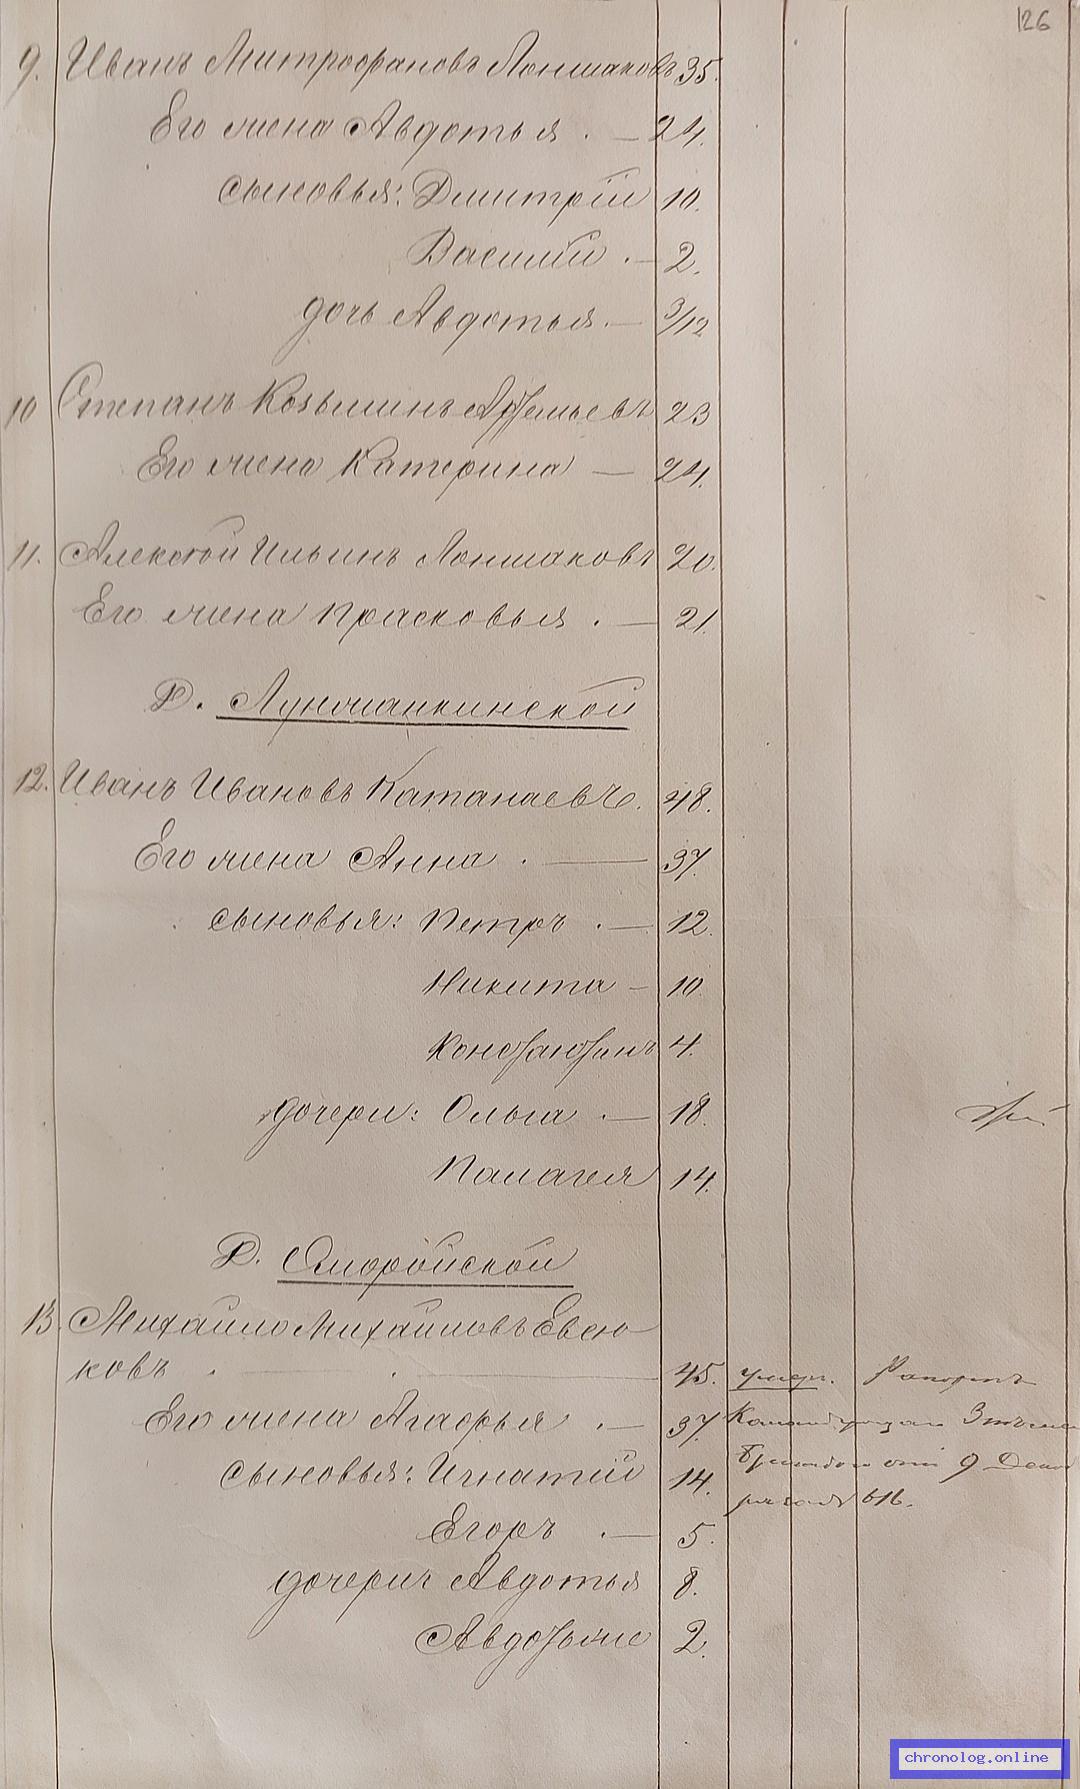 126
9. Иванъ Митрофановъ Лоншаковъ 35.
Его жена Авдотья . — 24.
сыновья: Дмитрій 10.
Василій . — 2.
дочь Авдотья . — 3/12
10 Степанъ Козьминъ Артемьевъ 23
Его жена Катерина — 24.
11. Алексѣй Ильинъ Лоншаковъ 20.
Его жена Прасковья . — 21.
Д. Лунжанкинской
12. Иванъ Ивановъ Катанаевъ. 48.
Его жена Анна . — 37.
сыновья: Петръ . — 12.
Никита — 10.
Константинъ 4.
дочери: Ольга . — 18.
Палагея 14.
Д.
13. Михайло Михайловъ Евсю-
ковъ . — . — 45. умеръ. Рапортъ
Его жена Агафья . — 37. Командующаго
сыновья: Игнатій 14. отъ 9
Егоръ . — 5. 616.
дочери Авдотья 8.
Авдотья же 2.
chronolog.online